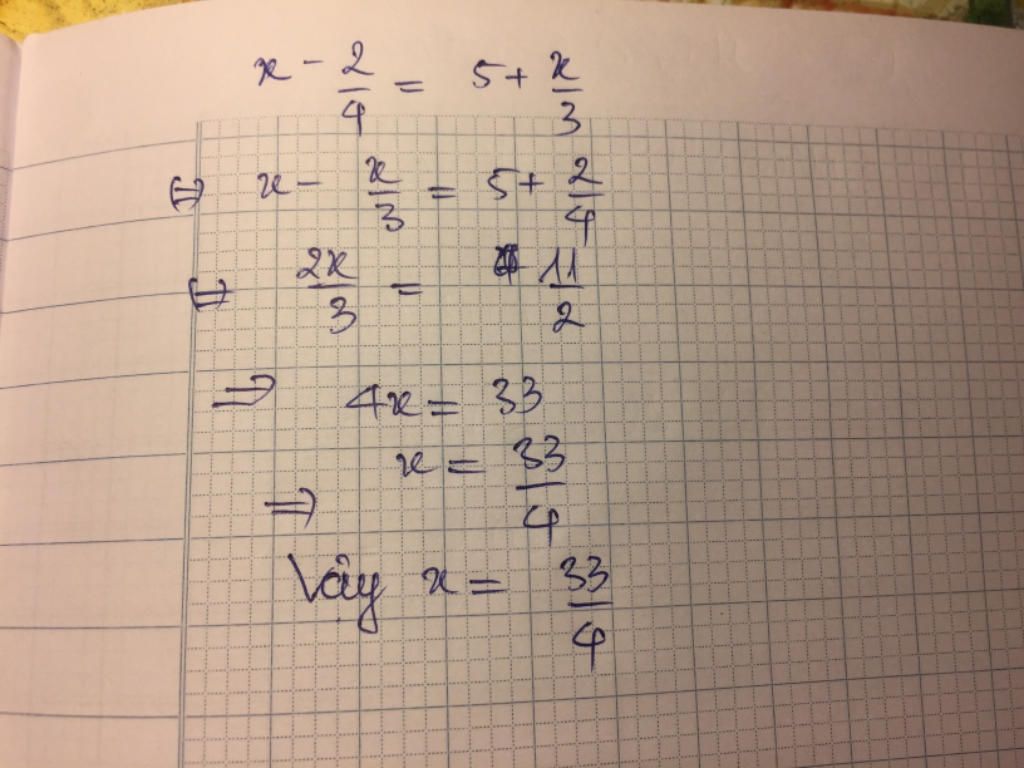 x - 2/4 = 5 + x/3
⇔ x - x/3 = 5 + 2/4
⇔ 2x/3 = 11/2
⇒ 4x = 33
⇒ x = 33/4
Vậy x = 33/4